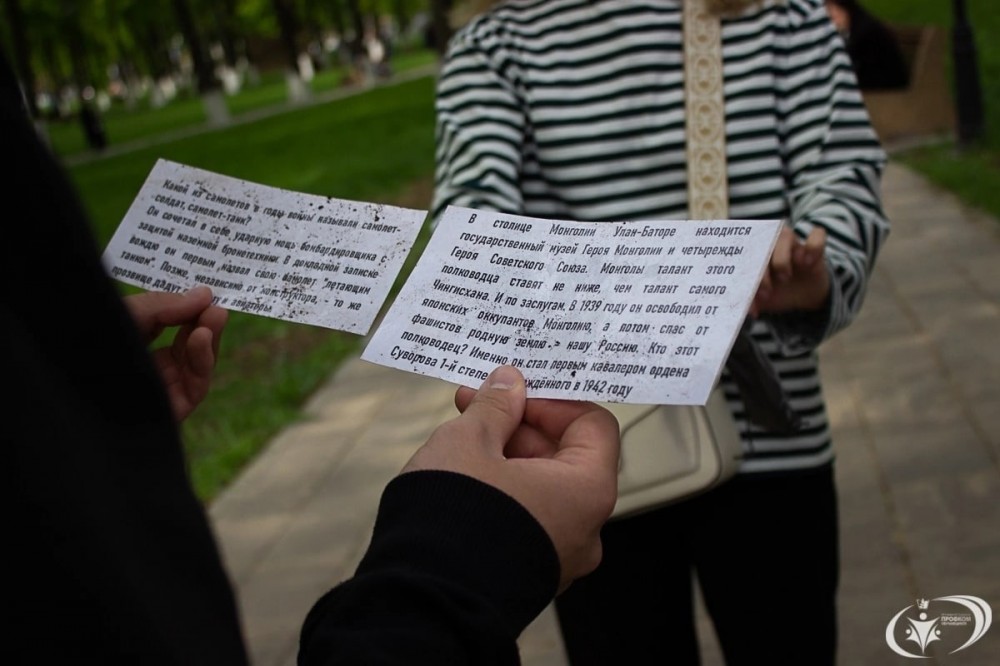 Какой из самолетов в годы войны называли самолет-
солдат, самолет-танк?
Он сочетал в себе ударную мощь бомбардировщика с
защитой наземной бронетехники. В докладной записке
вождю он первым назвал свой самолет "летающим
танком". Позже, независимо от конструктора, то же
прозвище дадут и
В столице Монголии Улан-Баторе находится
государственный музей Героя Монголии и четырежды
Героя Советского Союза. Монголы талант этого
полководца ставят не ниже, чем талант самого
Чингисхана. И по заслугам. В 1939 году он освободил от
японских оккупантов Монголию, а потом спас от
фашистов родную землю - нашу Россию. Кто этот
полководец? Именно он стал первым кавалером ордена
Суворова 1-й степе ждённого в 1942 году
ПРОФКОМ